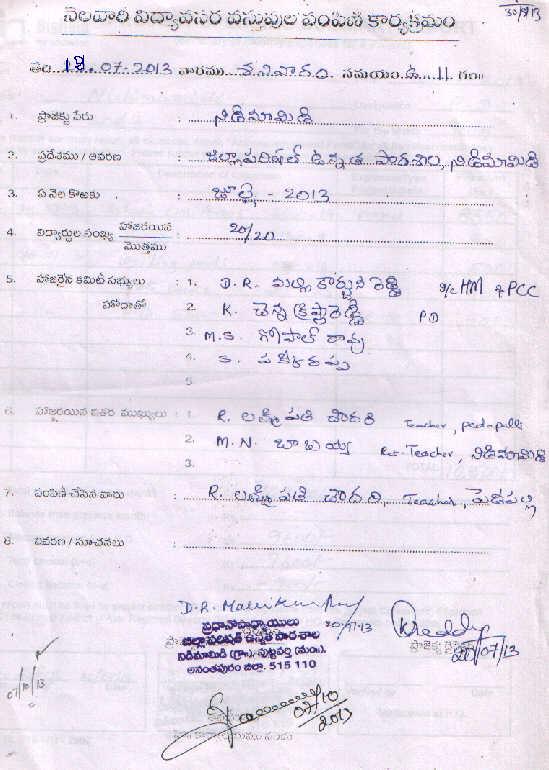 30/7/13
నెలవారి విద్యావసర వస్తువుల పంపిణి కార్యక్రమం
తేది 19.07-2013 వారము శనివారం. సమయం. ఉ. 11. గం॥
1. ప్రాజెక్టు పేరు : నిడిమామిడి
2. ప్రదేశము / ఆవరణ : జిల్లా పరిషత్ ఉన్నత పాఠశాల, నిడిమామిడి
3. ఏ నెల కొఱకు : జూలై - 2013
4. విద్యార్థుల సంఖ్య హాజరయిన / మొత్తము : 20/20
5. హాజరైన కమిటీ సభ్యులు : 1. D.R. మల్లికార్జున రెడ్డి HM & PCC
హోదాతో 2. K. చెన్నక్రిష్ణారెడ్డి PD
3. M.S. గోపాల్ రావు
4. S. పక్కీరప్ప
5.
6. హాజరయిన ఇతర ముఖ్యులు : 1. R. లక్ష్మీపతి చౌదరి Teacher, peda-palli
2. M.N. బాబయ్య Ret-Teacher, నిడిమామిడి
3.
7. పంపిణీ చేసిన వారు : R. లక్ష్మీపతి చౌదరి, Teacher, పెదపల్లి
8. వివరణ / సూచనలు :
ప్రధానోపాధ్యాయులు
జిల్లా పరిషత్ ఉన్నత పాఠశాల
నిడిమామిడి (గ్రా), పుట్టపర్తి (మం),
అనంతపురం జిల్లా. 515 110
20/07/13
07/10/13
07/10/2013